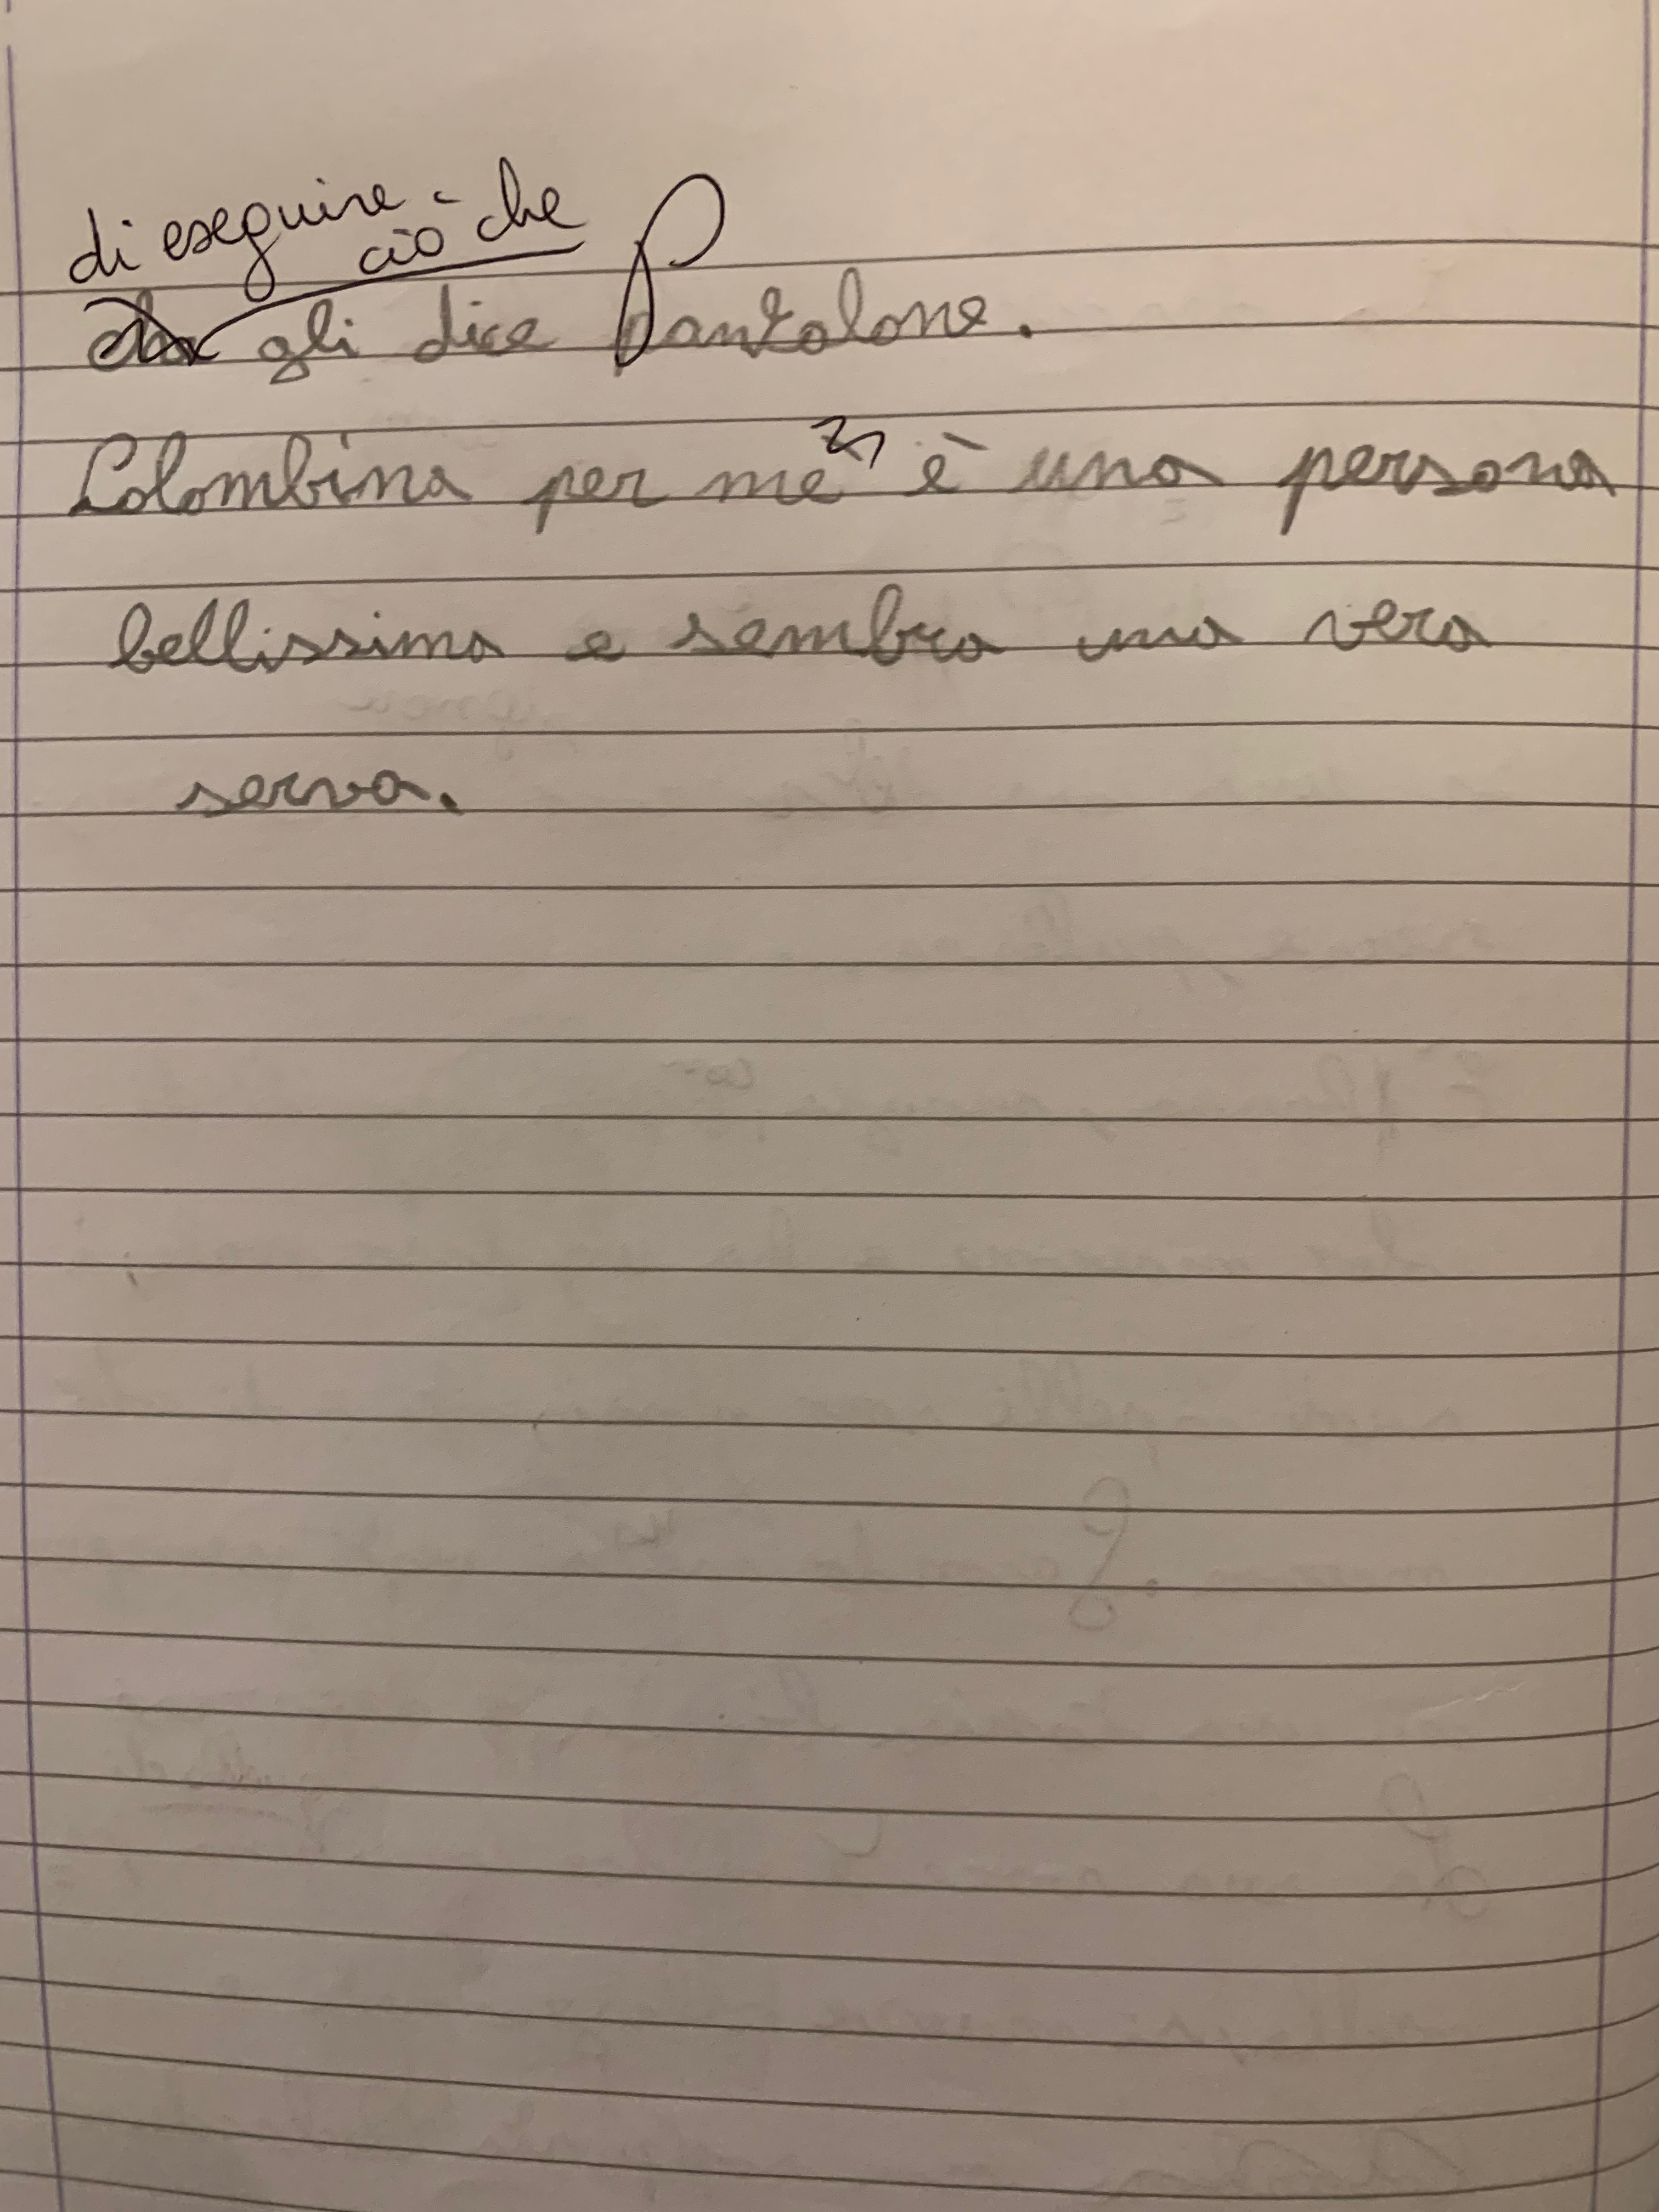 di eseguire ciò che
gli dice Pantalone.
Colombina per me è una persona
bellissima e sembra una vera
serva.